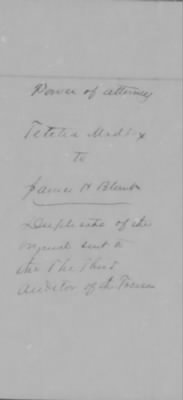 Power of attorney
Letitia Maddox
to
James H Blunt
Duplicate of the
original sent to
the the Third
Auditor of the Treasu